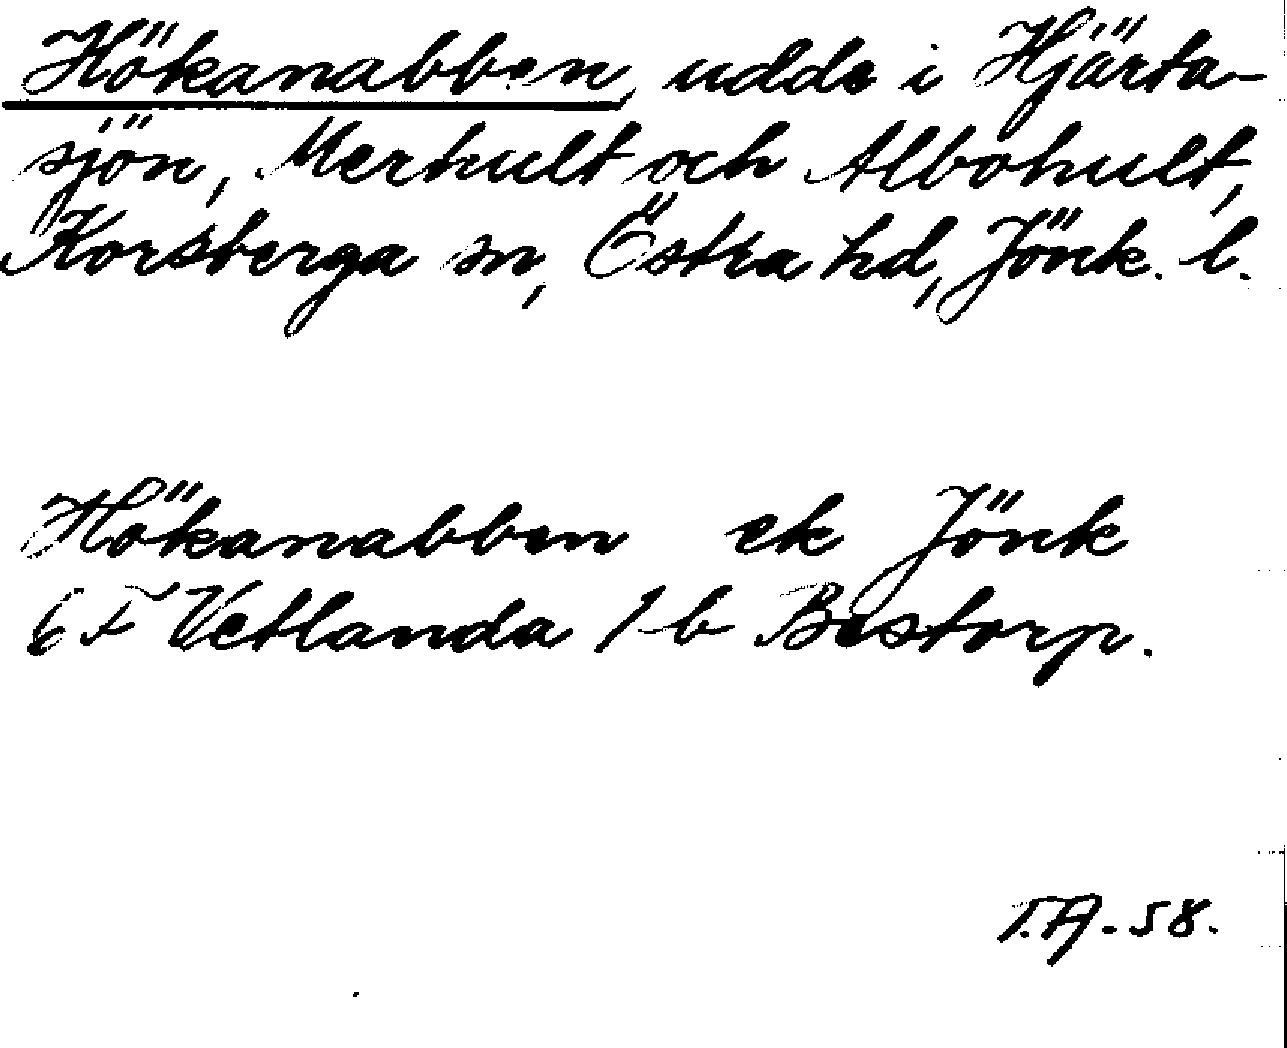 Hökanabben, udde i Hjärta-
sjön, Merhult och Albohult,
Korsberga sn, Östra hd, Jönk. l.
Hökanabben ek Jönk
6 F Vetlanda 1 b Bastorp.
T.A. - 58.